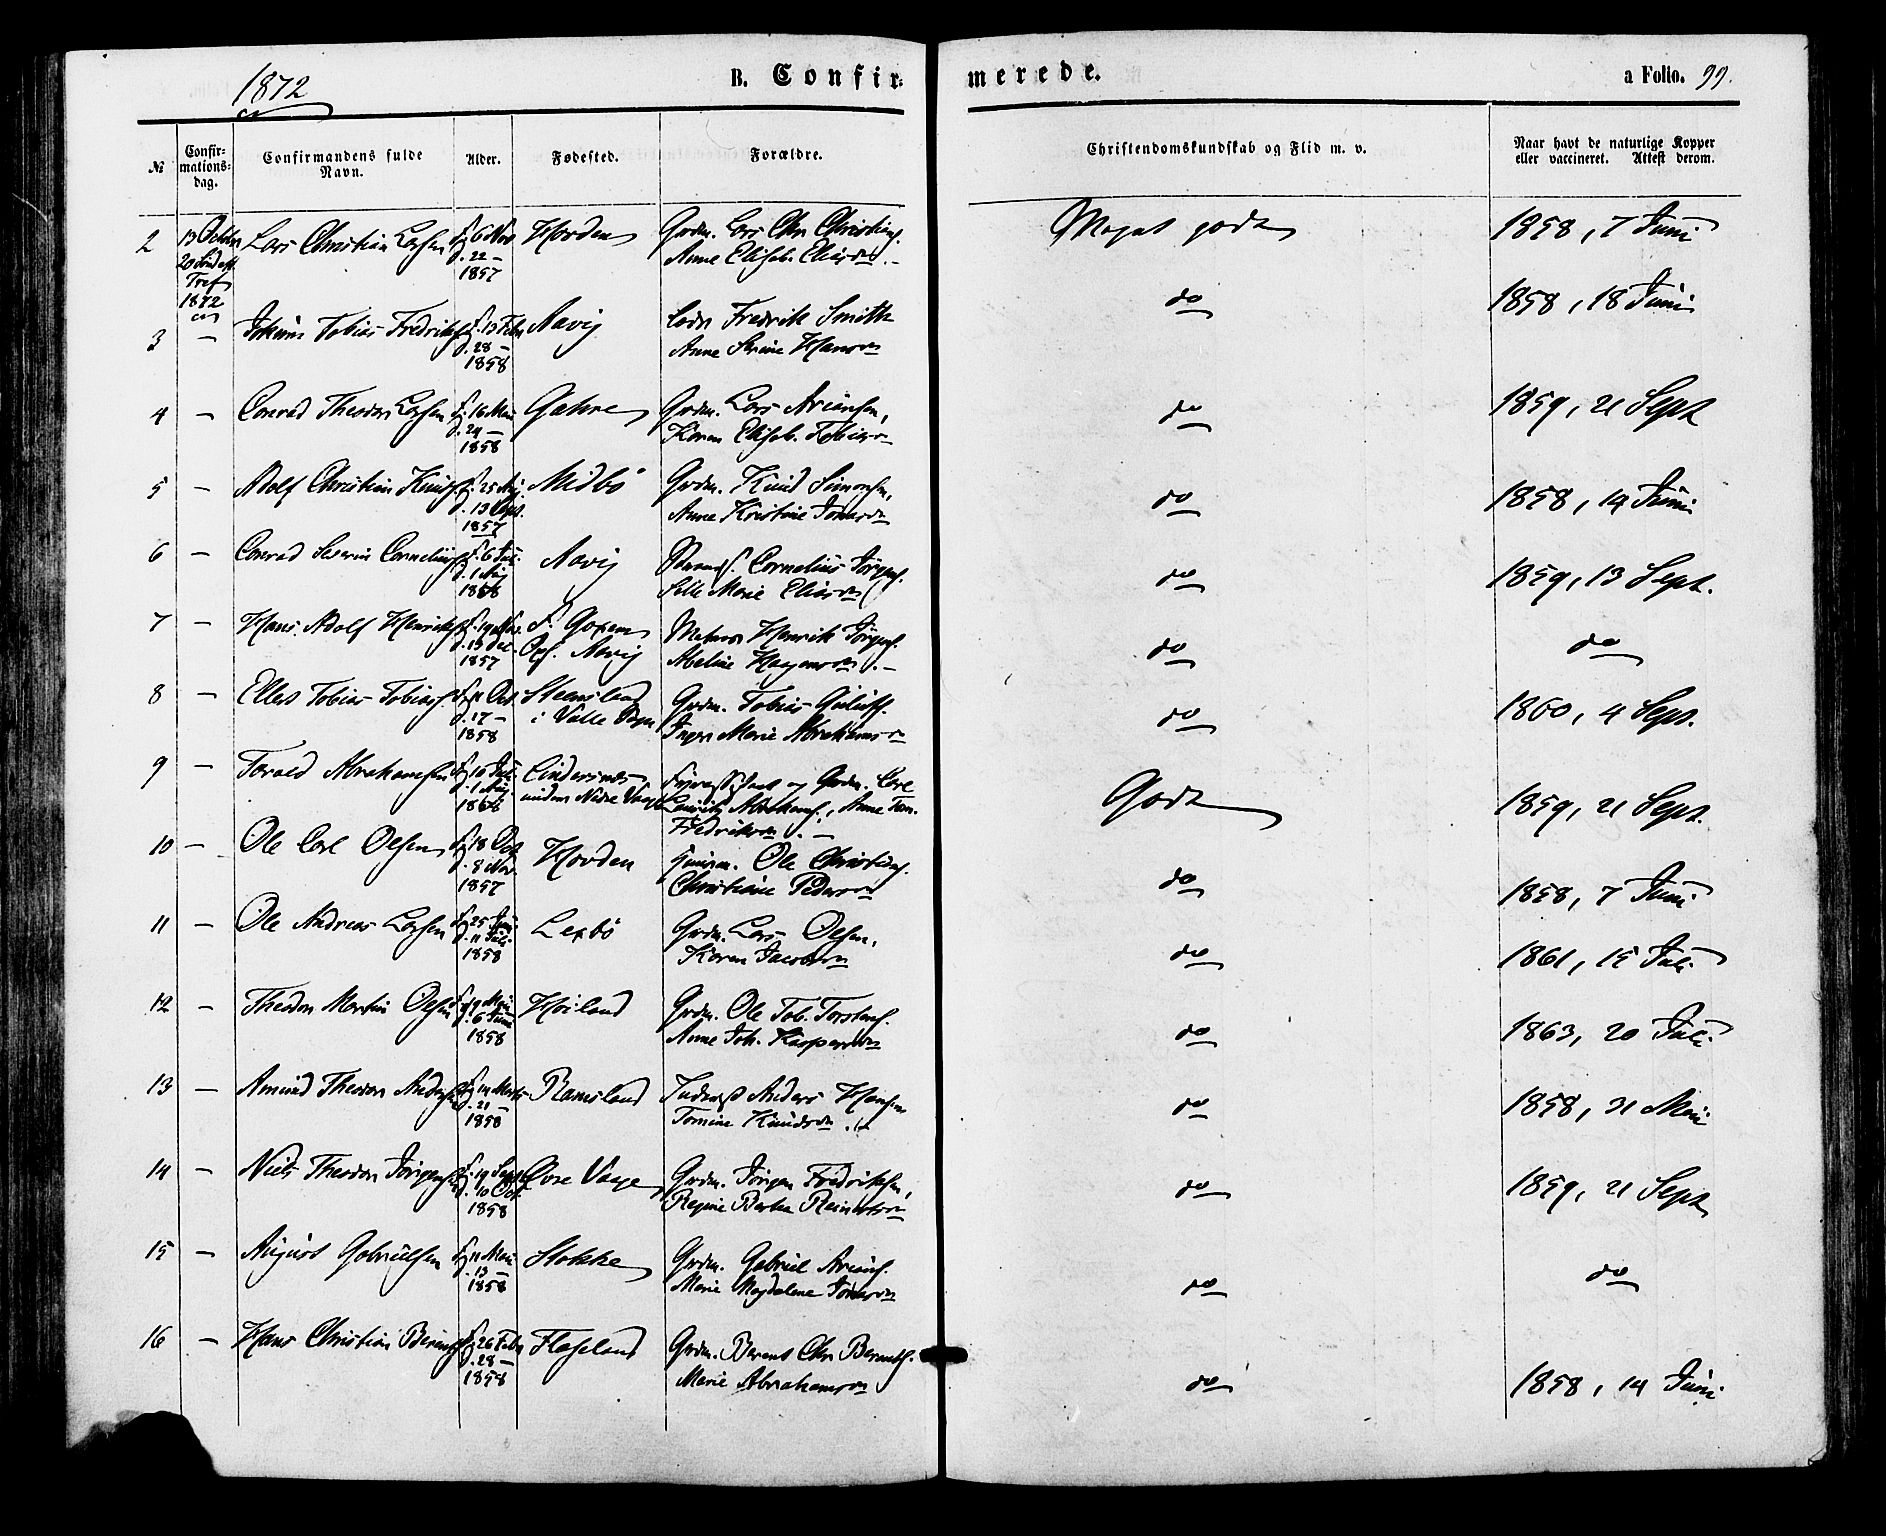 1872
B. Confirmerede.
a Folio. 99.
№
Confirmations-dag.
Confirmandens fulde Navn.
Alder.
Fødested.
Forældre.
Christendomskundskab og Flid m. v.
Naar havt de naturlige Kopper eller vaccineret. Attest derom.
2 13 Octbr 20 Tref 1872 Lars Christian Larsen f. 6 Nov d. 22 – 1857 Hovden Grdm. Lars Chr. Christens. Anne Elisab. Eliasdr. Meget godt 1858, 7 Juni
3 – Tobias Fredriks f. 13 Febr d. 28 – 1858 Aavig Fredrik Smith Anne Serine Hansdr do 1858, 18 Juni
4 – Conrad Theodor Larsen f. 16 Mai d. 24 – 1858 Gahre Grdm. Lars Ariansen, Karen Elisab. Tobiasdr do 1859, 21 Sept
5 – Adolf Christian Knuds f. 25 Aug. d. 13 Sept. 1857 Midbö Grdm. Knud Simonsen, Anne Kristine Jonasdr do 1858, 14 Juni
6 – Conrad Severin Cornelius f. 6 Jul. d. 1 Aug 1858 Aavig Cornelius Jörgens. Marie Eliasdr do 1859, 13 Sept.
7 – Hans Adolf Henriks f. 19 Nov. d. 13 Dec. 1857 f. Aavig Henrik Jörgens. Abeline Haagensdr. do do
8 – Ellert Tobias Tobias f. 11 Oct d. 17 – 1858 Steensland i Valle Sogn Grdm. Tobias Inger Marie Abrahamsdr do 1860, 4 Sept.
9 – Torald Abrahamsen f. 16 Juli d. 1 Aug. 1858 Lindesnes under Nedre Vaage og Grdm. Carl Lauritz Abrahams., Anne Tom. Fredriksdr. Godt 1859, 21 Sept.
10 – Ole Carl Olsen f. 18 Oct d. 8 Nov. 1857 Hovden Ole Christens. Christiane Pedersdr do 1858, 7 Juni
11 – Ole Andreas Larsen f. 25 Juni d. 11 Juli 1858 Lexbö Grdm. Lars Olsen, Karen Jacobsdr do 1861, 15 Juli
12 – Theodor Martin Olsen f. 19 Mai d. 6 Juni 1858 Höiland Grdm. Ole Tob. Torstens. Anne Joh. Kaspersdr do 1863, 20 Juli
13 – Amund Theodor Anders f. 14 Marts d. 21 – 1858 Ramsland Anders Hansen Tomine Knudsdr. do 1858, 31 Mai
14 – Niels Theodor Jörgens f. 19 Sept d. 10 Oct. 1858 Övre Vaage Grdm. Jörgen Fredriksen, Regine Bertea Reinertsdr do 1859, 21 Sept
15 – August Gabrielsen f. 11 Mai d. 13 – 1858 Stokke Grdm. Gabriel Arians. Marie Magdalene Jonasdr do do
16 – Hans Christian Berents f. 26 Febr d. 28 – 1858 Flageland Grdm. Berent Chr. Berents. Marie Abrahamsdr do 1858, 14 Juni